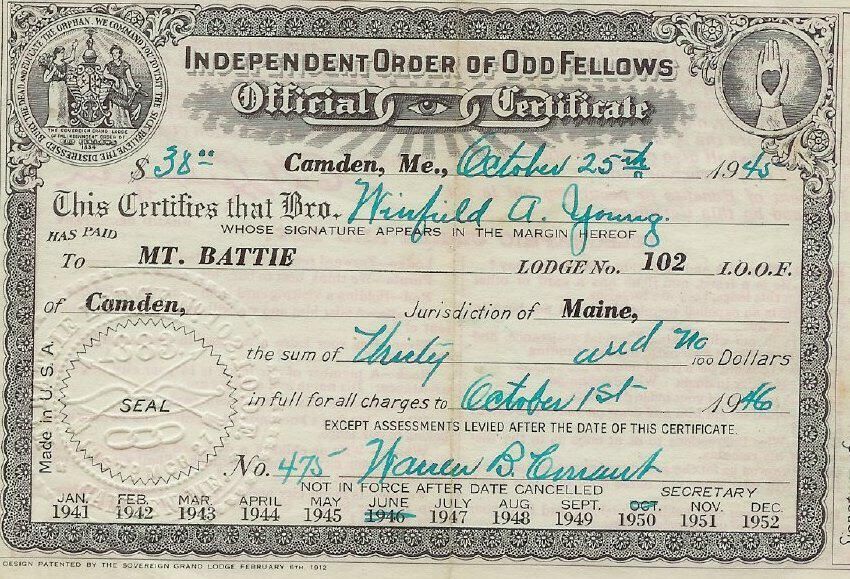 WE COMMAND YOU TO VISIT THE SICK, RELIEVE THE DISTRESSED, BURY THE DEAD AND EDUCATE THE ORPHAN.
THE SOVEREIGN GRAND LODGE
OF THE INDEPENDENT ORDER OF
ODD FELLOWS
1834
INDEPENDENT ORDER OF ODD FELLOWS
Official Certificate
$ 38 00 Camden, Me., October 25th 1945
This Certifies that Bro. Winfield A. Young.
HAS PAID WHOSE SIGNATURE APPEARS IN THE MARGIN HEREOF
To MT. BATTIE LODGE No. 102 I.O.O.F.
of Camden, Jurisdiction of Maine,
the sum of Thirty and no 100 Dollars
in full for all charges to October 1st 1946
EXCEPT ASSESSMENTS LEVIED AFTER THE DATE OF THIS CERTIFICATE.
Made in U.S.A.
1883
SEAL
No. 475 Warren B. Conant
NOT IN FORCE AFTER DATE CANCELLED SECRETARY
JAN. FEB. MAR. APRIL MAY JUNE JULY AUG. SEPT. OCT. NOV. DEC.
1941 1942 1943 1944 1945 1946 1947 1948 1949 1950 1951 1952
DESIGN PATENTED BY THE SOVEREIGN GRAND LODGE FEBRUARY 6TH, 1912